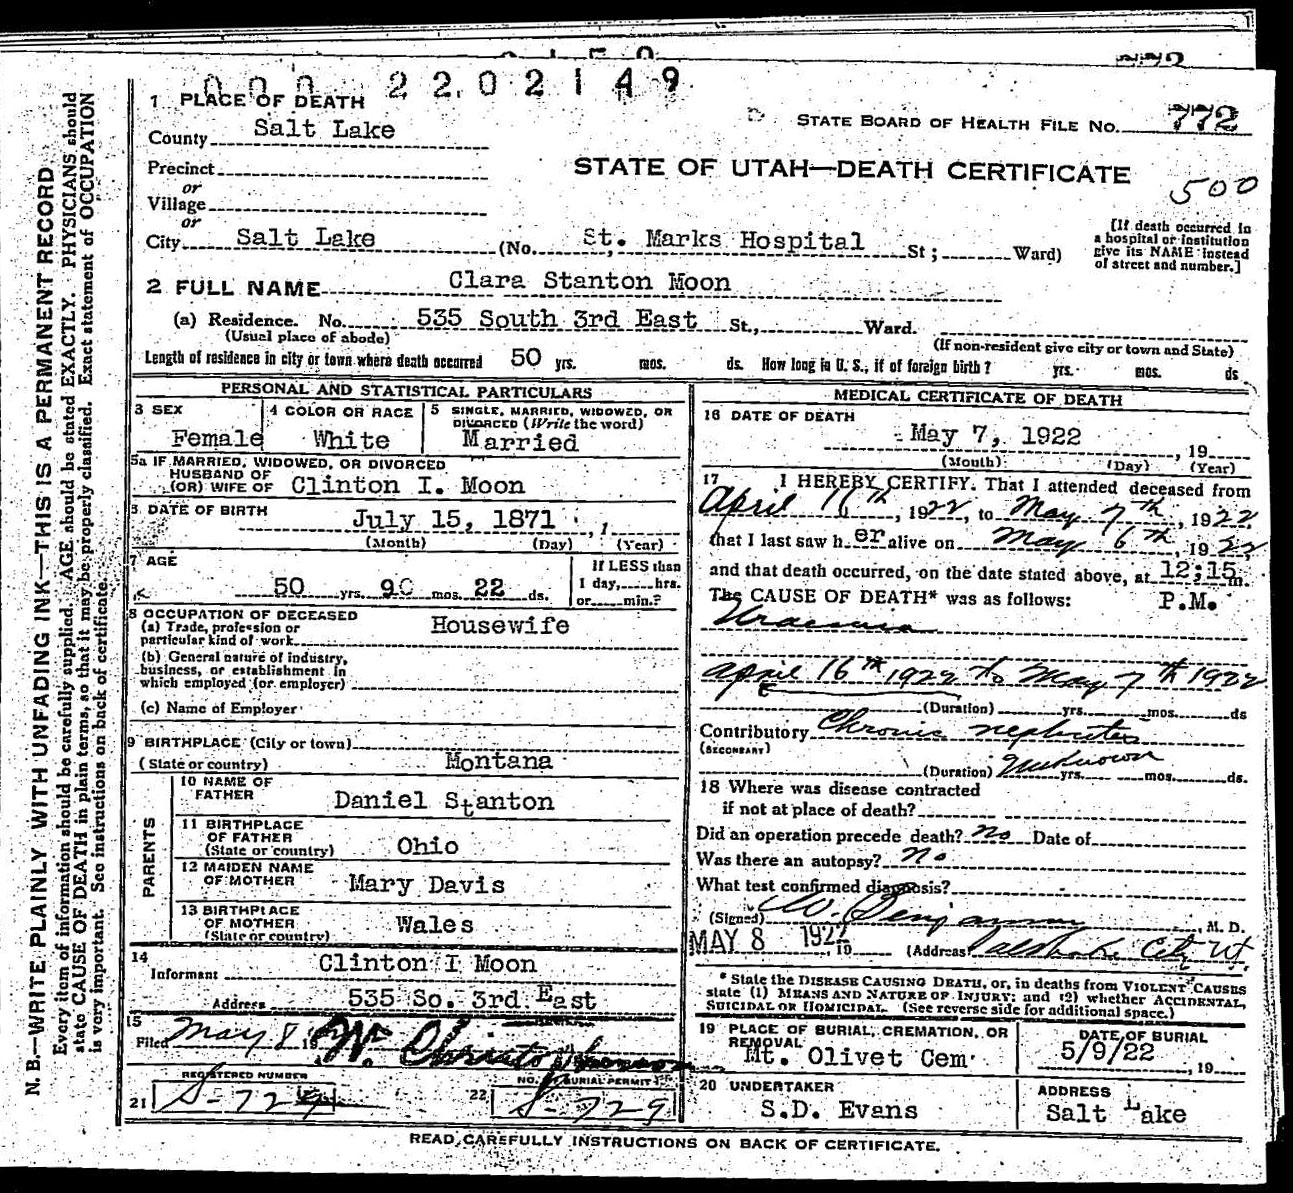 000 2202149
1 PLACE OF DEATH
County Salt Lake
STATE BOARD OF HEALTH FILE No. 772
Precinct
STATE OF UTAH—DEATH CERTIFICATE
500
or
Village
or
City Salt Lake (No. St. Marks Hospital St; Ward)
[If death occurred in
a hospital or institution
give its NAME instead
of street and number.]
2 FULL NAME Clara Stanton Moon
(a) Residence. No. 535 South 3rd East St., Ward.
(Usual place of abode) (If non-resident give city or town and State)
Length of residence in city or town where death occurred 50 yrs. mos. ds. How long in U. S., if of foreign birth? yrs. mos. ds
PERSONAL AND STATISTICAL PARTICULARS
3 SEX
Female
4 COLOR OR RACE
White
5 SINGLE, MARRIED, WIDOWED, OR
DIVORCED (Write the word)
Married
5a IF MARRIED, WIDOWED, OR DIVORCED
HUSBAND OF
(OR) WIFE OF Clinton I. Moon
6 DATE OF BIRTH
July 15, 1871
(Month) (Day) (Year)
7 AGE
50 yrs. 9 mos. 22 ds.
If LESS than
1 day, hrs.
or min.?
8 OCCUPATION OF DECEASED
(a) Trade, profession or
particular kind of work Housewife
(b) General nature of industry,
business, or establishment in
which employed (or employer)
(c) Name of Employer
9 BIRTHPLACE (City or town)
(State or country) Montana
PARENTS
10 NAME OF
FATHER Daniel Stanton
11 BIRTHPLACE
OF FATHER
(State or country) Ohio
12 MAIDEN NAME
OF MOTHER Mary Davis
13 BIRTHPLACE
OF MOTHER
(State or country) Wales
14
Informant Clinton I Moon
Address 535 So. 3rd East
15
Filed May 8 1
REGISTERED NUMBER
21 S-729
NO. BURIAL PERMIT
22 S-729
MEDICAL CERTIFICATE OF DEATH
16 DATE OF DEATH
May 7, 1922 , 19
(Month) (Day) (Year)
17 I HEREBY CERTIFY. That I attended deceased from
April 16th, 1922, to May 7th, 1922,
that I last saw her alive on May 6th, 1922
and that death occurred, on the date stated above, at 12:15 m.
The CAUSE OF DEATH* was as follows: P.M.
Uraemia
April 16th 1922 to May 7th 1922
(Duration) yrs. mos. ds
Contributory Chronic nephritis
(SECONDARY)
(Duration) Unknown yrs. mos. ds.
18 Where was disease contracted
if not at place of death?
Did an operation precede death? no Date of
Was there an autopsy? no
What test confirmed diagnosis?
(Signed) W. Benjamin, M. D.
MAY 8 1922, 19 (Address Salt Lake City Ut.
* State the DISEASE CAUSING DEATH, or, in deaths from VIOLENT CAUSES
state (1) MEANS AND NATURE OF INJURY; and (2) whether ACCIDENTAL,
SUICIDAL OR HOMICIDAL. (See reverse side for additional space.)
19 PLACE OF BURIAL, CREMATION, OR
REMOVAL
Mt. Olivet Cem.
DATE OF BURIAL
5/9/22 , 19
20 UNDERTAKER
S.D. Evans
ADDRESS
Salt Lake
READ CAREFULLY INSTRUCTIONS ON BACK OF CERTIFICATE.
N. B.—WRITE PLAINLY WITH UNFADING INK—THIS IS A PERMANENT RECORD
Every item of information should be carefully supplied. AGE should be stated EXACTLY. PHYSICIANS should
state CAUSE OF DEATH in plain terms, so that it may be properly classified. Exact statement of OCCUPATION
is very important. See instructions on back of certificate.